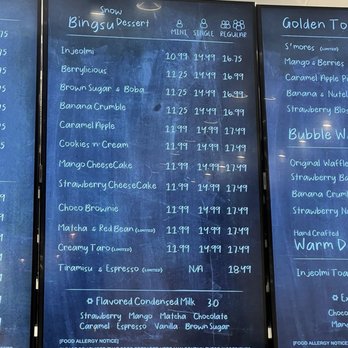 Snow
Bingsu Dessert
MINI SINGLE REGULAR
Injeolmi 10.99 14.49 16.75
Berrylicious 11.25 14.49 16.99
Brown Sugar & Boba 11.25 14.49 16.99
Banana Crumble 11.25 14.49 16.99
Caramel Apple 11.99 14.99 17.49
Cookies 'n' Cream 11.99 14.99 17.49
Mango CheeseCake 11.99 14.99 17.49
Strawberry CheeseCake 11.99 14.99 17.49
Choco Brownie 11.99 14.99 17.49
Matcha & Red Bean (LIMITED) 11.99 14.99 17.49
Creamy Taro (LIMITED) 11.99 14.99 17.49
Tiramisu & Espresso (LIMITED) N/A 18.49
Flavored Condensed Milk 3.0
Strawberry Mango Matcha Chocolate
Caramel Espresso Vanilla Brown Sugar
[FOOD ALLERGY NOTICE]
Golden To
S'mores (LIMITED)
Mango & Berries
Caramel Apple Pi
Banana & Nutel
Strawberry Blo
Bubble Wa
Original Waffle
Strawberry Ba
Banana Crumb
Strawberry Nu
Hand Crafted
Warm D
Injeolmi Toa
Ex
Choco
Mang
[FOOD ALLERGY NOTICE]